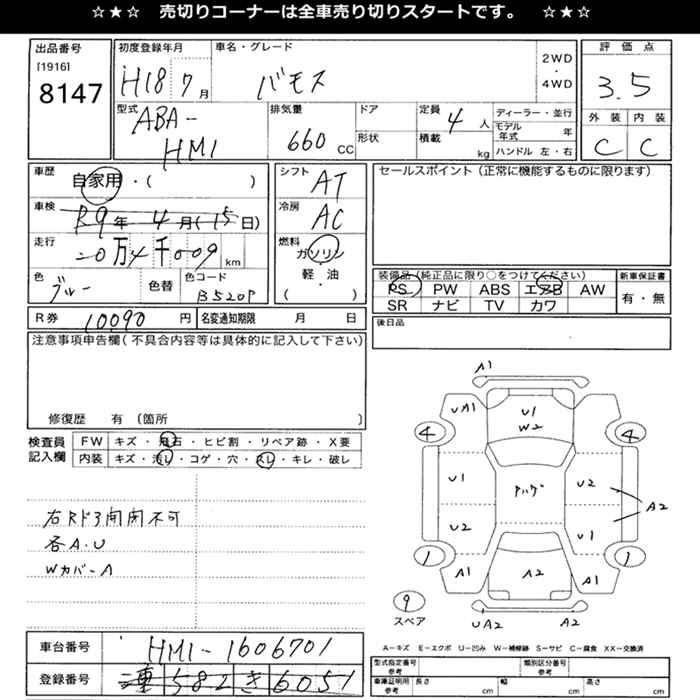 ☆★☆ 売切りコーナーは全車売り切りスタートです。 ☆★☆
出品番号
[1916]
8147
初度登録年月
H18 7月
車名・グレード
バモス
2WD
・
4WD
評価点
3.5
外装 内装
C C
型式
ABA-
HM1
排気量
660 CC
ドア
形状
定員
4人
積載
kg
ディーラー・並行
モデル年式 年
ハンドル 左・右
車歴
自家用・( )
車検
R9年4月(15日)
走行
20万4千009 km
色
ブルー
色替
色コード
B520P
シフト
AT
冷房
AC
燃料
ガソリン
・
軽・油
( )
セールスポイント(正常に機能するものに限ります)
装備品(純正品に限り○をつけてください)
PS PW ABS エアB AW
SR ナビ TV カワ
新車保証書
有・無
R券 10090円
名変通知期限 月 日
後日品
注意事項申告欄(不具合内容等は具体的に記入して下さい)
修復歴 有 (箇所 )
検査員
記入欄
FW キズ・飛石・ヒビ割・リペア跡・X要
内装 キズ・汚レ・コゲ・穴・スレ・キレ・破レ
右Rドア開閉不可
各A.U
WカバーA
A1
UA1
U1
W2
4
4
U1
U2
A2
U2
U1
1
1
A1
A2
A1
9
スペア
UA2
A2
A−キズ E−エクボ U−凹み W−補修跡 S−サビ C−腐食 XX−交換済
車台番号
HM1-1606701
登録番号
582 き 6051
型式指定番号
参考
類別区分番号
参考
車庫証明用
参考
長さ cm
幅 cm
高さ cm